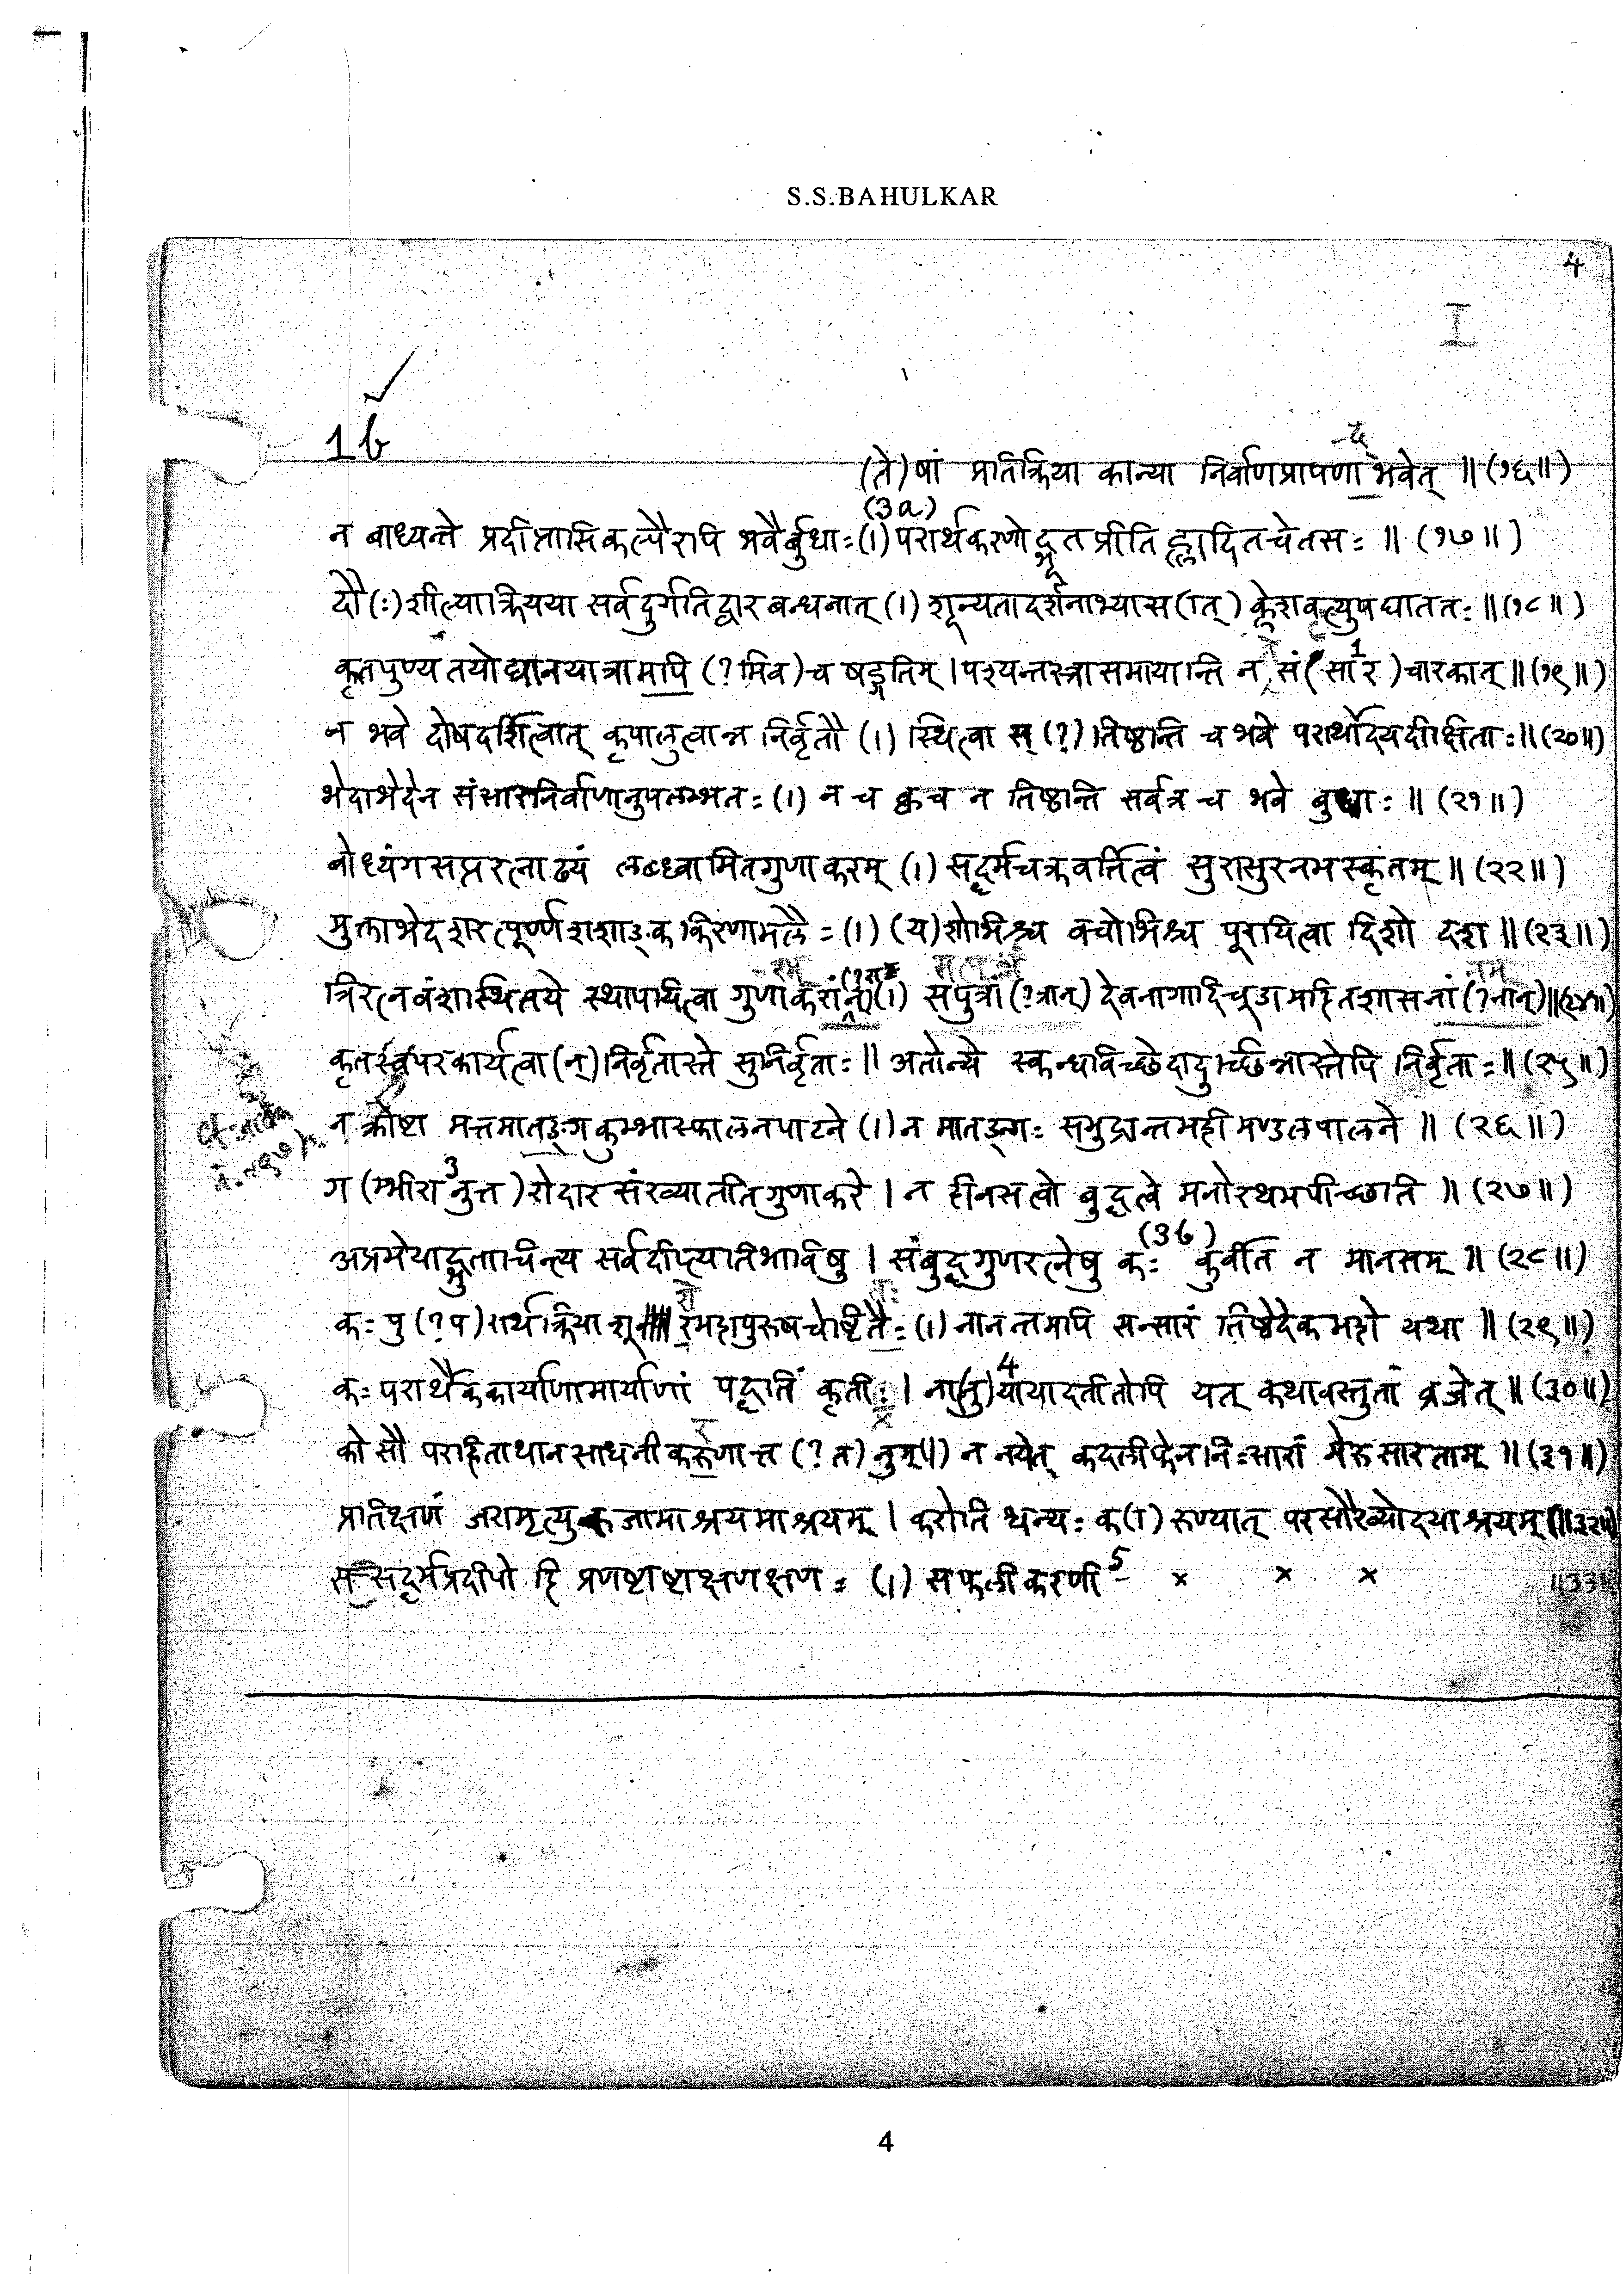 S.S.BAHULKAR
4
I
1b
(ते)षां प्रतिक्रिया कान्या निर्वाणप्रापणा भवेत् ॥(१६॥)
(3a)
न बाध्यन्ते प्रदीप्तासिकल्पैरपि भवैर्बुधाः(।) परार्थकरणोद्भूतप्रीतिह्लादितचेतसः ॥ (१७॥)
दौ(ः)शील्याक्रियया सर्वदुर्गतिद्वारबन्धनात् (।) शून्यतादर्शनाभ्यास(ात्) क्लेशवृत्त्युपघाततः ॥(१८॥)
कृतपुण्यतयोद्यानयात्रामपि (?मिव)च षड्गतिम् । पश्यन्तस्त्रासमायान्ति न सं(सार)चारकात् ॥(१९॥)
न भवे दोषदर्शित्वात् कृपालुत्वान्न निर्वृतौ (।) स्थित्वा स् (?) तिष्ठन्ति च भवे परार्थोदयदीक्षिताः॥(२०॥)
भेदाभेदेन संसारनिर्वाणानुपलम्भतः (।) न च क्वच न तिष्ठन्ति सर्वत्र च भवे बुधाः ॥ (२१॥)
बोध्यंगसप्तरत्नाढ्यं लब्ध्वामितगुणाकरम् (।) सद्धर्मचक्रवर्तित्वं सुरासुरनमस्कृतम् ॥ (२२॥)
मुक्ताभेदशरत्पूर्ण्णशशाङ्ककिरणामलैः (।) (य)शोभिश्च वचोभिश्च पूरयित्वा दिशो दश ॥(२३॥)
त्रिरत्नवंशस्थितये स्थापयित्वा गुणाकरां (।) सपुत्रां (?त्रान्) देवनागादिचूडामहितशासनां (?नान्)॥(२४॥)
कृतस्वपरकार्यत्वा(न्)निर्वृतास्ते सुनिर्वृताः॥ अतोन्ये स्कन्धविच्छेदादुच्छिन्नास्तेपि निर्वृताः॥ (२५॥)
न क्रोष्टा मत्तमातङ्गकुम्भास्फालनपाटने (।) न मातङ्गः समुद्रान्तमहीमण्डलपालने ॥ (२६॥)
ग(म्भीरा3नुत्त)रोदारसंख्यातीतगुणाकरे । न हीनसत्त्वो बुद्धत्वे मनोरथमपीच्छति ॥ (२७॥)
(3b)
अप्रमेयाद्भुताचिन्त्यसर्वदीप्त्यतिभाविषु । संबुद्धगुणरत्नेषु कः कुर्वीत न मानसम् ॥ (२८॥)
कः पु(?प)रार्थक्रियाशूरमहापुरुषचेष्टितैः (।) नानन्तमपि सन्सारं तिष्ठेदेकमहो यथा ॥ (२९॥)
कः परार्थैककार्याणामार्याणां पद्धतिं कृती । ना(नु)4यायादतीतोपि यत् कथावस्तुतां व्रजेत् ॥(३०॥)
को सौ परहितार्थानसाधनीकरूणात्त (?त) नुम्(।) न नयेत् कदलीफेननिःसारां मेरुसारताम् ॥ (३१॥)
प्रतिक्षणं जरामृत्युरुजामाश्रयमाश्रयम् । करोति धन्यः क(ा)रुण्यात् परसौख्योदयाश्रयम् (॥३२॥)
स सद्धर्मप्रदीपो हि प्रणष्टाष्टाक्षणक्षणः (।) सफलीकरणी5 × × × ॥33॥
4